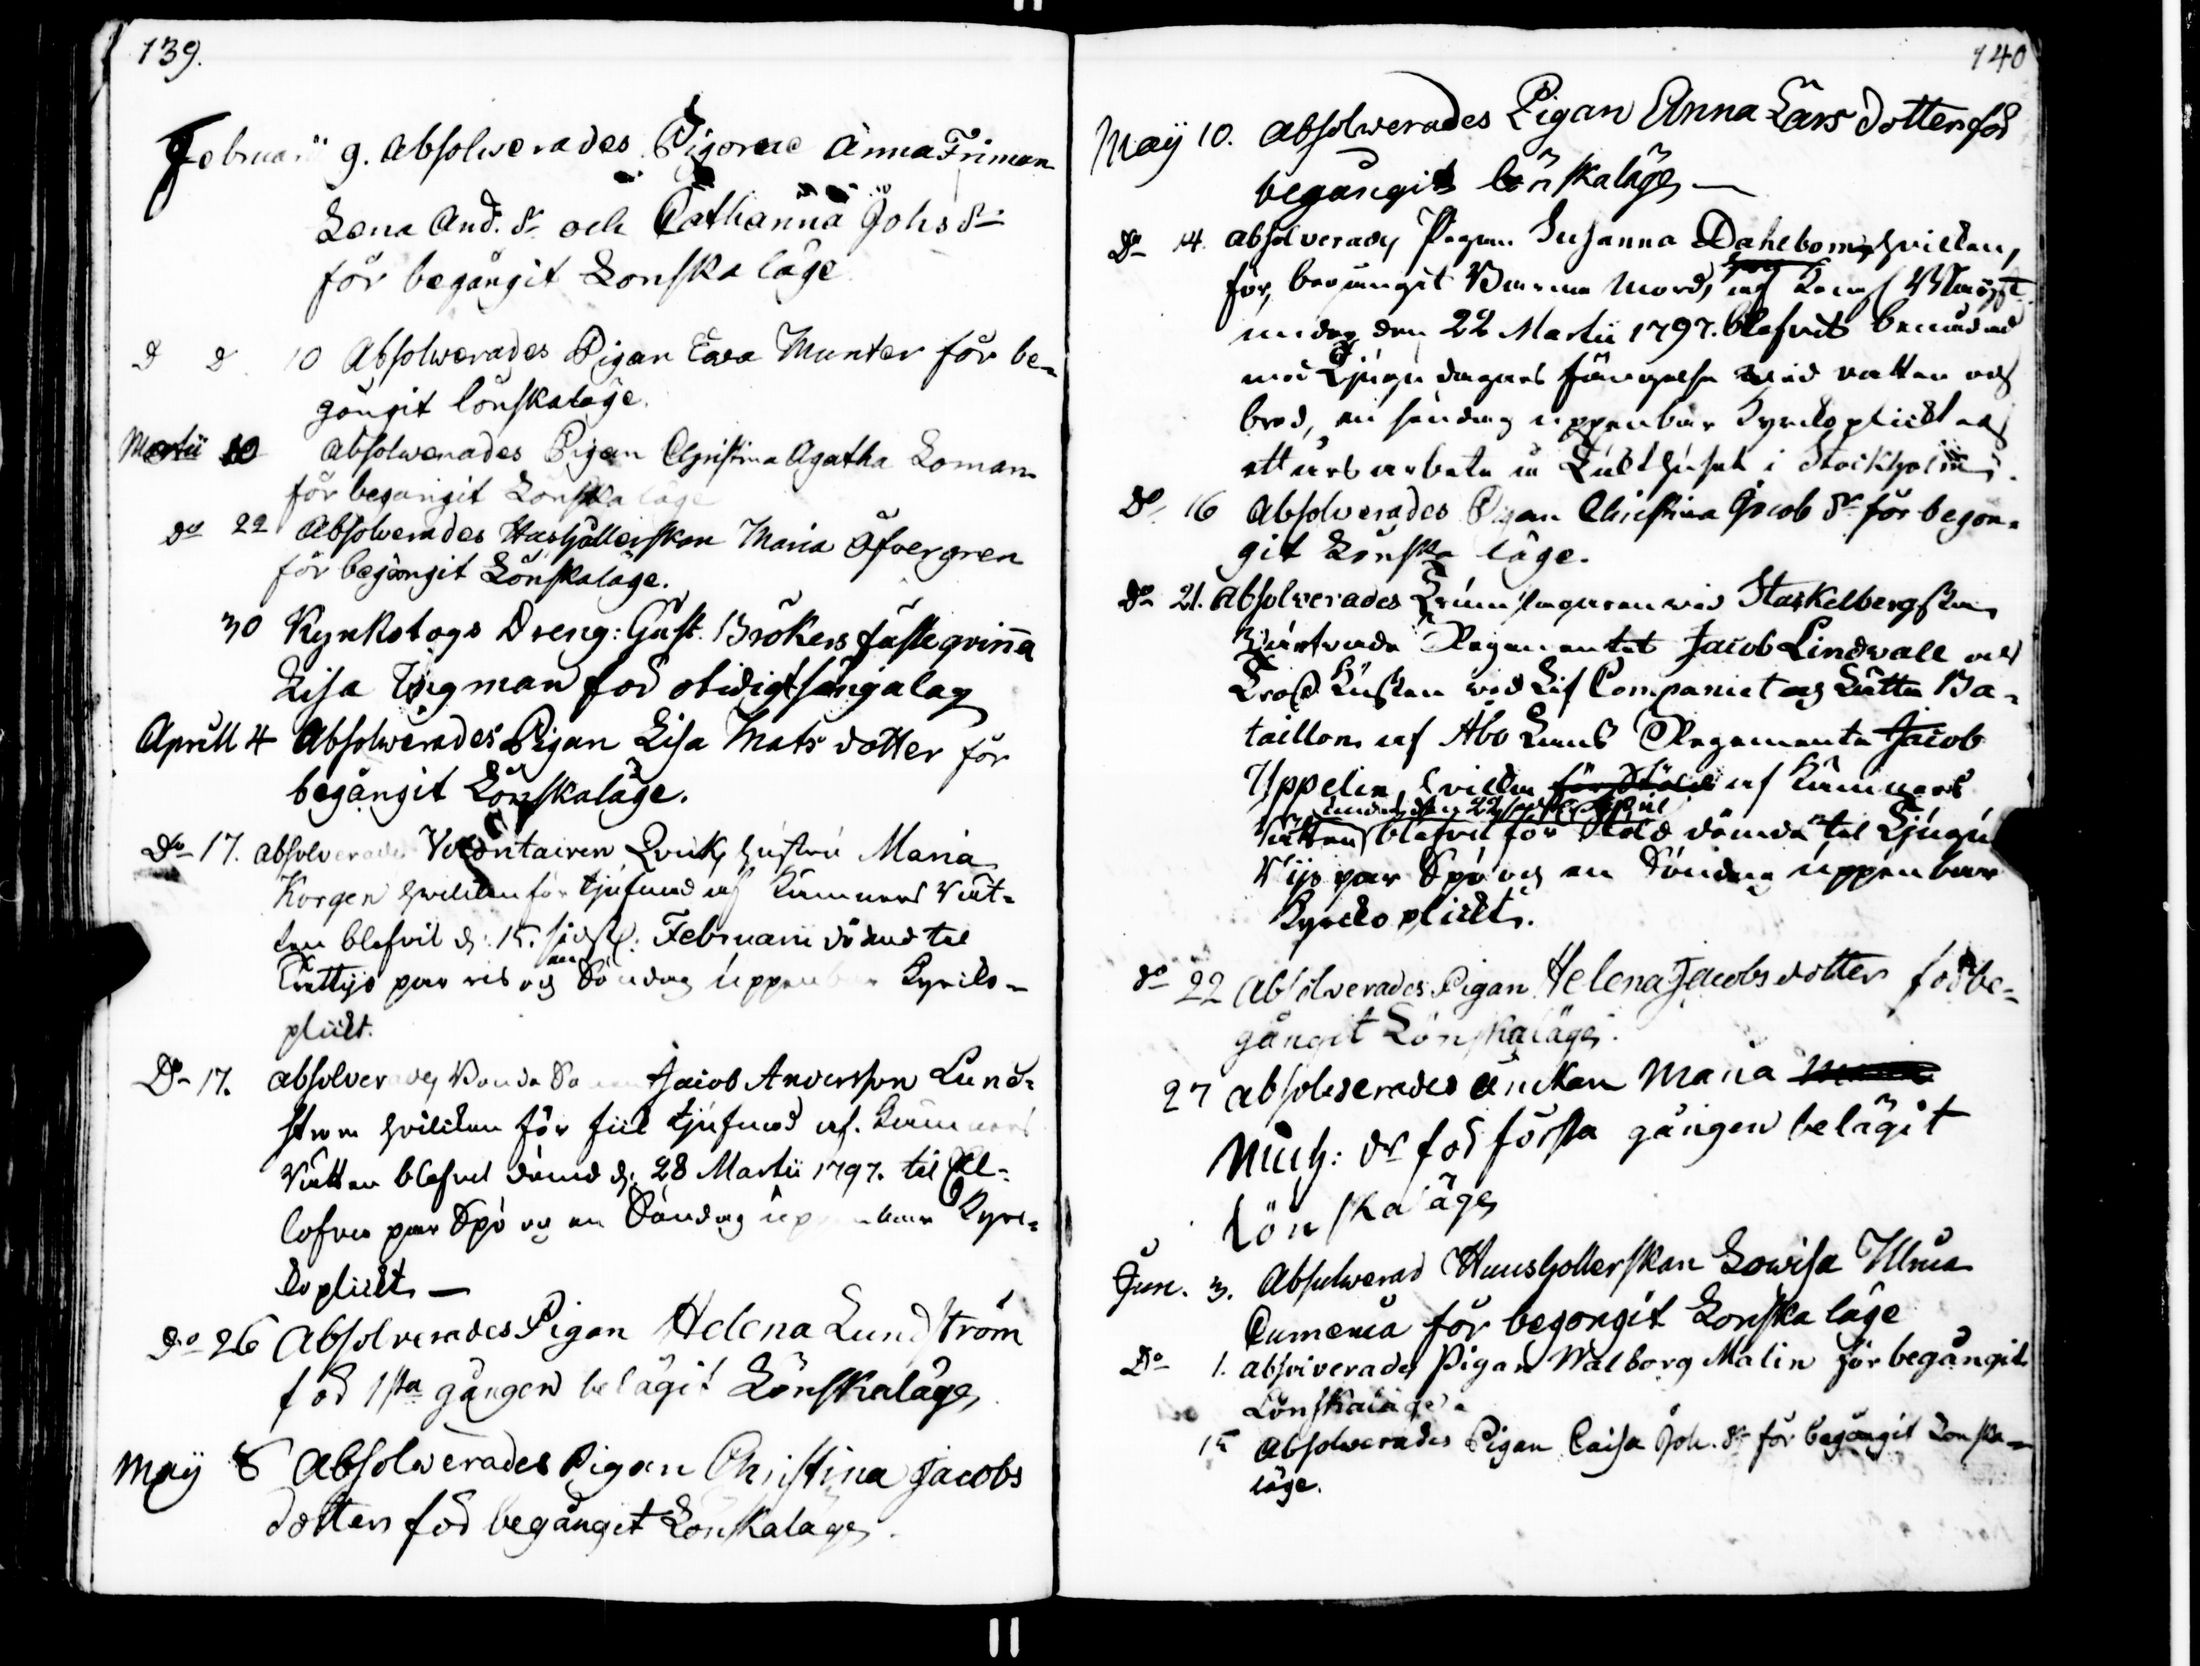 139.
Februarii 9. Absolverades Pigorne Anna Friman
Lena And. dr och Catharina Johs dr
för begångit Lönska läge
D d 10 Absolwerades Pigan Eva Munter för be-
gångit lönskaläge.
Martii 10 Absolwerades Pigan Christina Agatha Loman
för begångit Lönska läge
do 22 Absolwerades Hushållerskan Maria Öfvergren
för begångit Lönskaläge.
30 Kyrkotogs Dreng: Gust. Brökers fästeqvinna
Lisa Tigman för otidigt sängalag
Aprill 4 Absolwerades Pigan Lisa Mats dotter för
begångit Lönskaläge.
Do 17. absolverades Volontairen hustru Maria
Korgen hvilcken för tjufnad af Kämners Rät-
ten blefvit d: 15. sidstl: Februarii dömd til
Trettijo par ris och en Söndag uppenbar Kyrko-
plickt.
Do 17. absolverades Bonde Sonen Jacob Andersson Lund-
ström hvilcken för tjufnad af Kämners
Rätten blefvit dömd d: 28 Martii 1797. til El-
lofva par Spö og en Söndag uppenbar Kyrc-
koplickt —
Do 26 Absolverades Pigan Helena Lundström
för 1sta gången belägit Lönskaläge
Maÿ 8 Absolwerades Pigan Christina Jacobs
dotter för begånget Lönskaläge.
140
Maÿ 10. Absolwerades Pigan Anna Lars dotter för
begångit lönskaläge —
Do 14. absolverades Pigan Susanna Dahlbom, hvilcken,
för begångit Barna mord, af
undag den 22 Martii 1797. blefvit benådad
med Tjugu dagars fängelse wid vatten och
bröd, en söndag uppenbar Kyrckoplickt och
ett års arbete å Tuckthuset i Stockholm.
Do 16 Absolverades Pigan Christina Jacob dr för begon-
git Lönska läge.
Do 21. Absolverades Trumslagaren wid Stackelbergska
Värfvade Regementet Jacob Lindvall och
Tross Kusken vid Lif Companiet og Lätta Ba-
taillon af Åbo Läns Regemente Jacob
Uppelin, hvilcka af Kämners
undag den 22 April
Rätten blefvit för Stöld dömda til Tjugu
Vijo par Spö og en Söndag uppenbar
Kyrckoplickt.
do 22 Absolverades Pigan Helena Jacobs dotter för be-
gångit Lönskaläge.
27 absolwerades änckan Maria
Mich: dr för första gången belägit
Lönskaläge
Jun. 3. Absolwerad Huushollerskan Lowisa Ulrica
för begongit Lonska läge
Do 1. absolverades Pigan Walborg Malin för begångit
Lönskaläge.
15 Absolwerades Pigan Caisa Joh. dr för begångit Lonska-
läge.